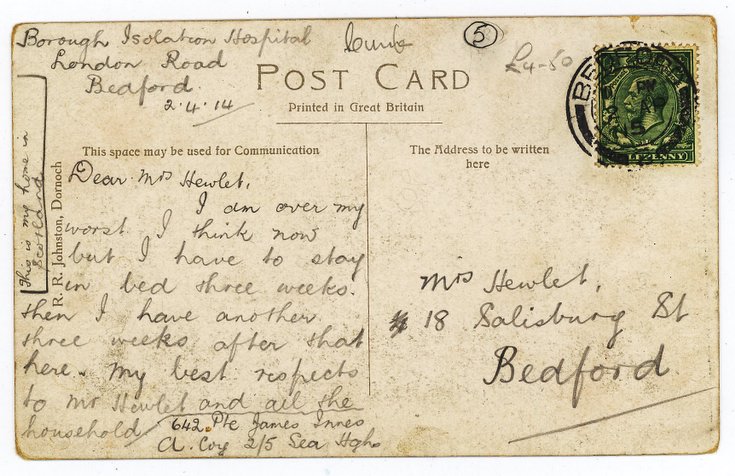 Borough Isolation Hospital
London Road
Bedford.
2.4.14
5
£4-50
POST CARD
Printed in Great Britain
This space may be used for Communication
The Address to be written
here
This is my home in
Scotland
R. R. Johnston, Dornoch
Dear Mrs Hewlet,
I am over my
worst I think now
but I have to stay
in bed three weeks.
then I have another
three weeks after that
here. My best respects
to Mr Hewlet and all the
household
642 Pte James Innes
A. Coy 2/5 Sea Hghs
Mrs Hewlet,
18 Salisbury St
Bedford
BEDFORD
LFPENNY